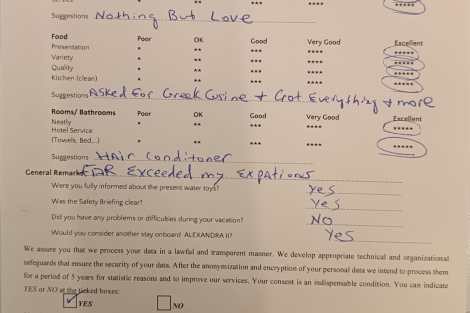 ** *** **** *****
Suggestions Nothing But Love
Food Poor OK Good Very Good Excellent
Presentation * ** *** **** *****
Variety * ** *** **** *****
Quality * ** *** **** *****
Kitchen (clean) * ** *** **** *****
Suggestions ASKed For Greek Cusine + Got Everything + more
Rooms/ Bathrooms Poor OK Good Very Good Excellent
Neatly * ** *** **** *****
Hotel Service
(Towels, Bed...) * ** *** **** *****
Suggestions HAir Conditoner
General Remarks FAR Exceeded my Expations
Were you fully informed about the present water toys? Yes
Was the Safety Briefing clear? Yes
Did you have any problems or difficulties during your vacation? NO
Would you consider another stay onboard ALEXANDRA II? Yes
We assure you that we process your data in a lawful and transparent manner. We develop appropriate technical and organizational
safeguards that ensure the security of your data. After the anonymization and encryption of your personal data we intend to process them
for a period of 5 years for statistic reasons and to improve our services. Your consent is an indispensable condition. You can indicate
YES or NO at the ticked boxes:
YES NO